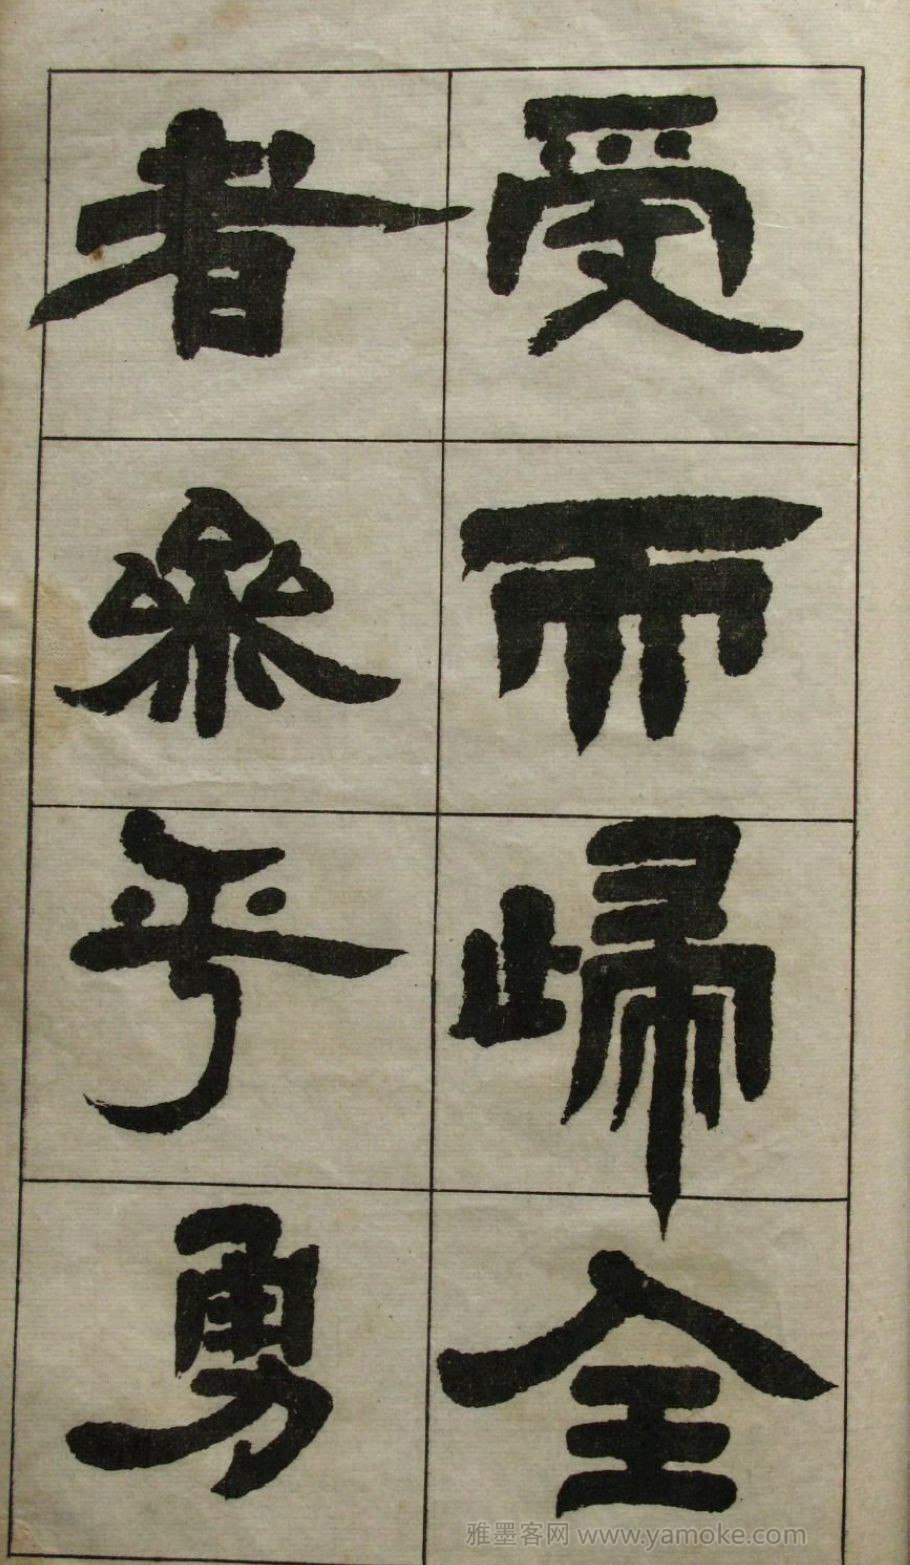 受而歸全
者參乎勇
雅墨客网 www.yamoke.com